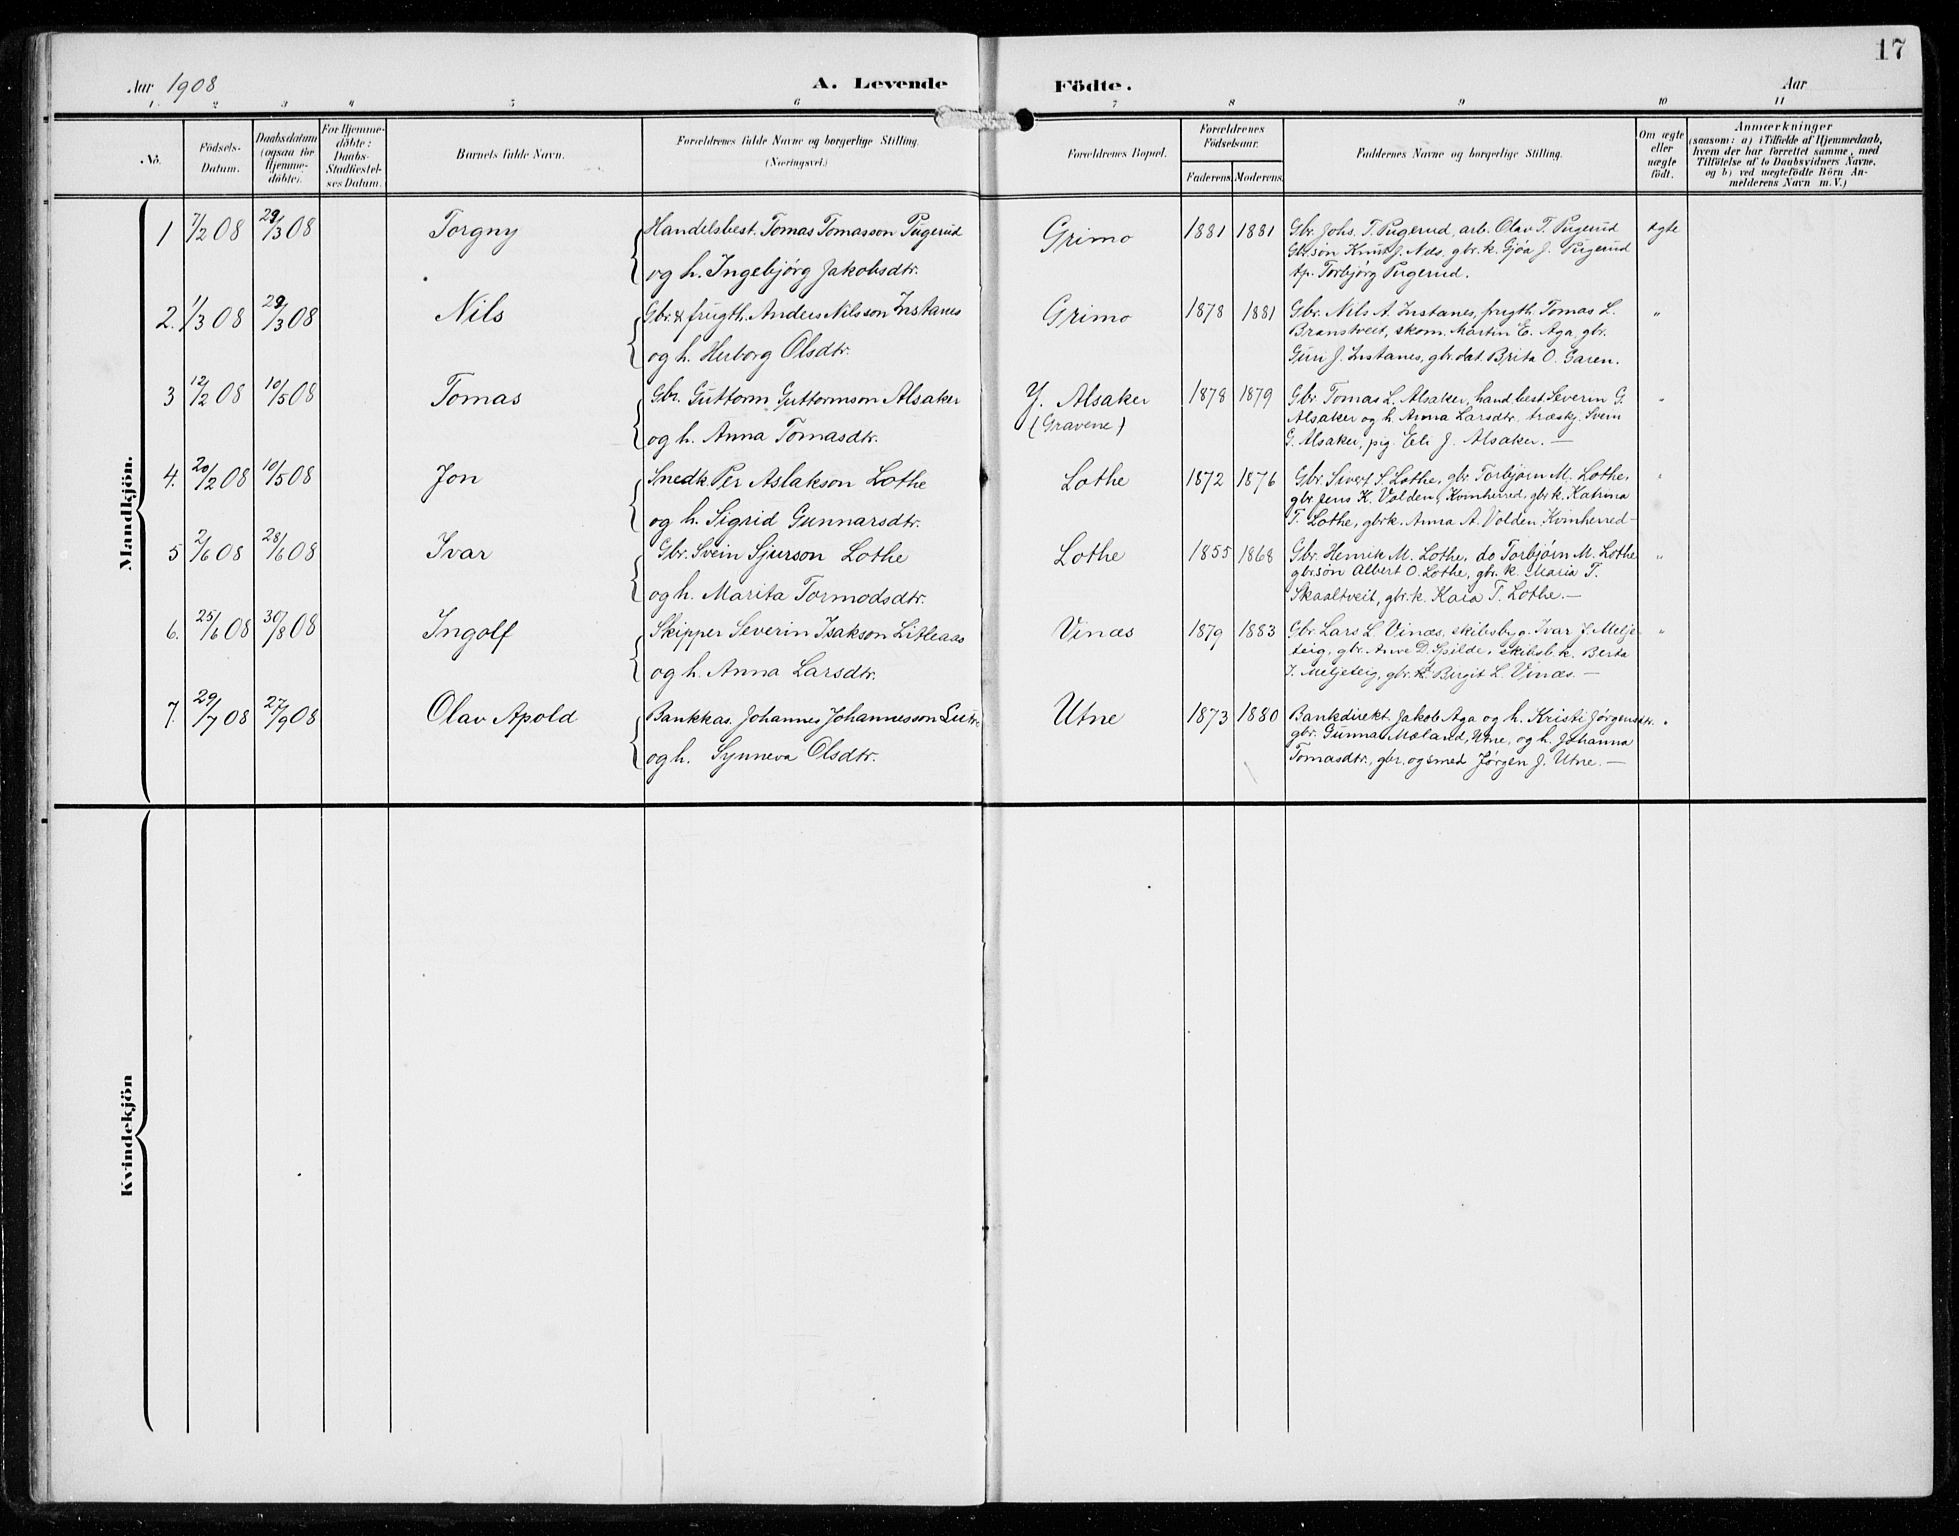 17
Aar 1908 A. Levende Födte. Aar
1. 2 3 4 5 6 7 8 9 10 11
No. Födsels-Datum. Daabsdatum (ogsaa for Hjemme-döbte). For Hjemme-döbte: Daabs-Stadfæstel-ses Datum. Barnets fulde Navn. Forældrenes fulde Navne og borgerlige Stilling. (Næringsvei.) Forældrenes Bopæl. Forældrenes Födselsaar. Faderens. Moderens. Faddernes Navne og borgerlige Stilling. Om ægte eller uægte födt. Anmærkninger (saasom: a) i Tilfælde af Hjemmedaab, hvem der har forrettet samme, med Tilföielse af to Daabsvidners Navne. og b) ved uægtefödte Börn An-melderens Navn m.V.)
Mandkjön.
1 7/2 08 29/3 08 Torgny Handelsbest. Tomas Tomasson Pugerud Grimo 1881 1881 Gbr. Johs. T. Pugerud, arb. Olav T. Pugerud ægte
Gbr.søn Knut J. Nes. gbr.k. Gjøa J. Pugerud
og h. Ingebjørg Jakobsdtr. tp. Torbjørg Pugerud.
2. 1/3 08 29/3 08 Nils Gbr. & frugth. Anders Nilsson Instanes Grimo 1878 1881 Gbr. Nils A. Instanes, frugth. Tomas L. "
Branstveit, skom. Martin E. Aga, gbr.
og h. Herborg Olsdtr. Guri J. Instanes, gbr.dat. Brita O. Garen.
3 12/2 08 10/5 08 Tomas Gbr. Guttorm Guttormson Alsaker Y. Alsaker 1878 1879 Gbr. Tomas L. Alsaker, hand.best Severin G. "
(Gravene) Alsaker og h. Anna Larsdtr. træskj. Svein
og h. Anna Tomasdtr. G. Alsaker, pig. Eli J. Alsaker. —
4. 20/2 08 10/5 08 Jon Snedk. Per Aslakson Lothe Lothe 1872 1876 Gbr. Sivert S. Lothe, gbr. Torbjørn M. Lothe, "
gbr. Jens K. Valden, Kvinherred, gbr.k. Katrina
og h. Sigrid Gunnarsdtr. T. Lothe, gbrk. Anna A. Valden, Kvinherred —
5 2/6 08 28/6 08 Ivar Gbr. Svein Sjurson Lothe Lothe 1855 1868 Gbr. Henrik M. Lothe, do Torbjørn M. Lothe "
gbr.søn Albert O. Lothe, gbr.k. Maria T.
og h. Marita Tormodsdtr. Skaaltveit, gbr.k. Kaia T. Lothe. —
6. 25/6 08 30/8 08 Ingolf Skipper Severin Isakson Litleaas Vinæs 1879 1883 Gbr. Lars L. Vinæs, skibsbyg. Ivar J. Melje- "
teig, gbr. Anve D. Spilde, skibsb.k. Berta
og h. Anna Larsdtr. J. Meljeteig, gbr.k. Birgit L. Vinæs. —
7. 29/7 08 27/9 08 Olav Apold Bankkas. Johannes Johannesson Utne 1873 1880 Bankdirekt. Jakob Aga og h. Kristi Jørgensdtr. "
gbr. Gunnar Mæland, Utne, og h. Johanna
og h. Synneva Olsdtr. Tomasdtr., gbr. og smed Jørgen J. Utne. —
Kvindekjön